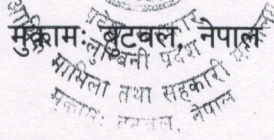 प्रदेश सरकार
मुकामः बुटवल, नेपाल
लुम्बिनी प्रदेश
मामिला तथा सहकारी
मुकामः बुटवल, नेपाल